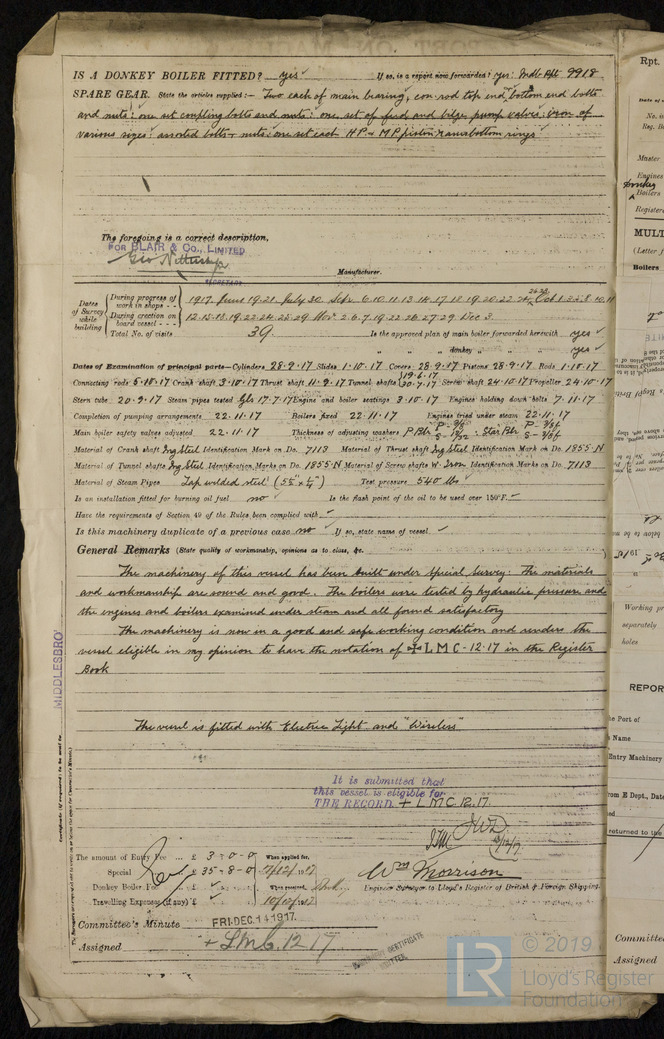 IS A DONKEY BOILER FITTED? yes If so, is a report now forwarded? yes: Mdb Rpt 9918
SPARE GEAR. State the articles supplied:— Two each of main bearing, con rod top end, bottom end bolts
and nuts: one set coupling bolts and nuts: one set of feed and bilge pump valves: iron of
various sizes: assorted bolts & nuts: one set each H.P. & M.P. piston bottom rings
The foregoing is a correct description,
FOR BLAIR & CO., LIMITED
SECRETARY
Manufacturer.
Dates of Survey while building
During progress of work in shops - - 1917. June 19.21. July 30. Sept. 6.10.11.13.14.17.18.19.20.22.24. 26.28. Oct 1.3.5.8.10.11
During erection on board vessel - - - 12.15.18.19.22.24.25.29 Nov 2.6.7.19.22.26.27.29 Dec 3.
Total No. of visits 39. Is the approved plan of main boiler forwarded herewith yes
" " donkey " " yes
Dates of Examination of principal parts—Cylinders 28.9.17 Slides 1.10.17 Covers 28.9.17 Pistons 28.9.17 Rods 1.10.17
Connecting rods 5.10.17 Crank shaft 3.10.17 Thrust shaft 11.9.17 Tunnel shafts 19.6.17 30.7.17 Screw shaft 24.10.17 Propeller 24.10.17
Stern tube 20.9.17 Steam pipes tested 17.7.17 Engine and boiler seatings 3.10.17 Engines holding down bolts 7.11.17
Completion of pumping arrangements 22.11.17 Boilers fixed 22.11.17 Engines tried under steam 22.11.17
Main boiler safety valves adjusted 22.11.17 Thickness of adjusting washers P Blr Star Blr
Material of Crank shaft Ing Steel Identification Mark on Do. 7113 Material of Thrust shaft Ing Steel Identification Mark on Do. 1855 N
Material of Tunnel shafts Ing Steel Identification Marks on Do. 1855 N Material of Screw shafts W. Iron Identification Marks on Do. 7113
Material of Steam Pipes Lap welded steel Test pressure 540 lbs
Is an installation fitted for burning oil fuel no Is the flash point of the oil to be used over 150°F.
Have the requirements of Section 49 of the Rules been complied with
Is this machinery duplicate of a previous case no If so, state name of vessel
General Remarks (State quality of workmanship, opinions as to class, &c.
The machinery of this vessel has been built under special survey. The materials
and workmanship are sound and good. The boilers were tested by hydraulic pressure and
the engines and boilers examined under steam and all found satisfactory
The machinery is now in a good and safe working condition and renders the
vessel eligible in my opinion to have the notation of ✠ L M C - 12.17 in the Register
Book
The vessel is fitted with Electric Light and "Wireless"
MIDDLESBRO'
It is submitted that
this vessel is eligible for
THE RECORD. + L M C 12.17.
The amount of Entry Fee ... £ 3 - 0 - 0 When applied for,
Special £ 35 - 8 - 0
Donkey Boiler Fee £ When received,
Travelling Expenses (if any) £
Wm Morrison
Engineer Surveyor to Lloyd's Register of British & Foreign Shipping.
Committee's Minute FRI. DEC. 14 1917.
Assigned + L.M.C. 12 17
© 2019
LR
Lloyd's Register
Foundation
Rpt.
Master
Engines
Donkey
Boilers
MULT
(Letter f
Boilers
Working pr
separately
holes
REPOR
the Port of
Name
Entry Machinery
from E Dept., Date
returned to the
Committe
Assigned